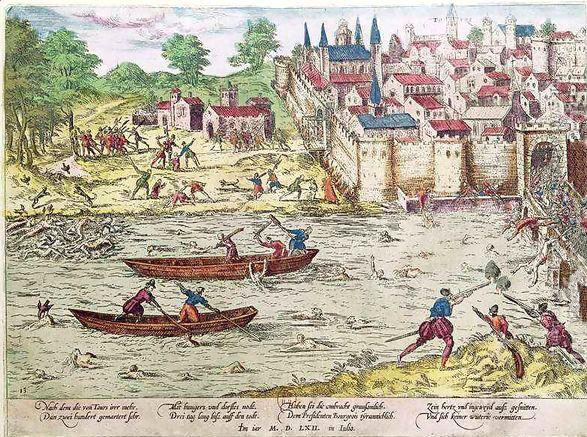 13
Nach dem die von Tours irer mehr.
Dan zwei hundert gemartert sehr.
Mit hungers vnd dorstes nodt.
Drei tag lang biß auff den todt.
Haben sei die vmbracht graußamlich.
Dem Presidenten Bourgeou tyrannichlich.
Sein hertz vnd ingeweyd auß geschnitten.
Vnd sich keiner wuterie vermitten.
Im iar M. D. LXII. in Julio.